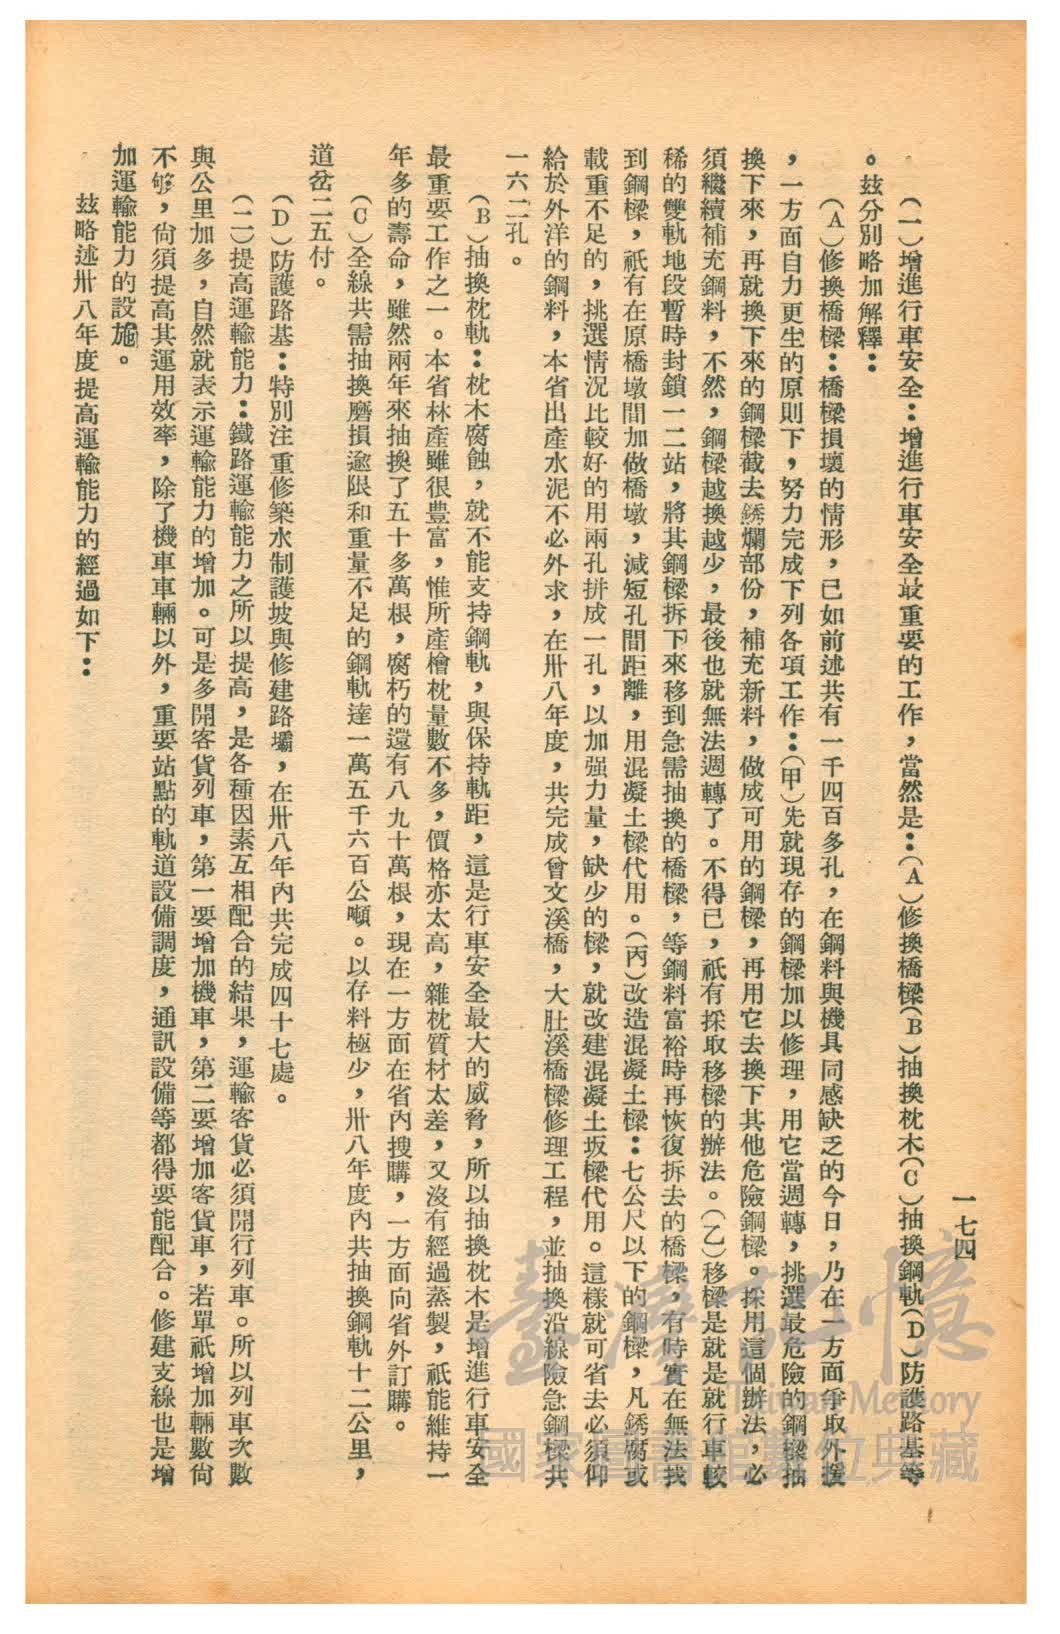 一七四
(一)增進行車安全：增進行車安全最重要的工作，當然是：(A)修換橋樑(B)抽換枕木(C)抽換鋼軌(D)防護路基等
。玆分別略加解釋：
(A)修換橋樑：橋樑損壞的情形，已如前述共有一千四百多孔，在鋼料與機具同感缺乏的今日，乃在一方面爭取外援
，一方面自力更生的原則下，努力完成下列各項工作：(甲)先就現存的鋼樑加以修理，用它當週轉，挑選最危險的鋼樑抽
換下來，再就換下來的鋼樑截去銹爛部份，補充新料，做成可用的鋼樑，再用它去換下其他危險鋼樑。採用這個辦法，必
須繼續補充鋼料，不然，鋼樑越換越少，最後也就無法週轉了。不得已，祇有採取移樑的辦法。(乙)移樑是就是就行車較
稀的雙軌地段暫時封鎖一二站，將其鋼樑拆下來移到急需抽換的橋樑，等鋼料富裕時再恢復拆去的橋樑，有時實在無法找
到鋼樑，祇有在原橋墩間加做橋墩，減短孔間距離，用混凝土樑代用。(丙)改造混凝土樑：七公尺以下的鋼樑，凡銹腐或
載重不足的，挑選情況比較好的用兩孔拼成一孔，以加强力量，缺少的樑，就改建混凝土坂樑代用。這樣就可省去必須仰
給於外洋的鋼料，本省出產水泥不必外求，在卅八年度，共完成曾文溪橋，大肚溪橋樑修理工程，並抽換沿線險急鋼樑共
一六二孔。
(B)抽換枕軌：枕木腐蝕，就不能支持鋼軌，與保持軌距，這是行車安全最大的威脅，所以抽換枕木是增進行車安全
最重要工作之一。本省林產雖很豊富，惟所產檜枕量數不多，價格亦太高，雜枕質材太差，又沒有經過蒸製，祇能維持一
年多的壽命，雖然兩年來抽換了五十多萬根，腐朽的還有八九十萬根，現在一方面在省內搜購，一方面向省外訂購。
(C)全線共需抽換磨損逾限和重量不足的鋼軌達一萬五千六百公噸。以存料極少，卅八年度內共抽換鋼軌十二公里，
道岔二五付。
(D)防護路基：特別注重修築水制護坡與修建路壩，在卅八年內共完成四十七處。
(二)提高運輸能力：鐵路運輸能力之所以提高，是各種因素互相配合的結果，運輸客貨必須開行列車。所以列車次數
與公里加多，自然就表示運輸能力的增加。可是多開客貨列車，第一要增加機車，第二要增加客貨車，若單祇增加輛數尙
不够，尙須提高其運用效率，除了機車車輛以外，重要站點的軌道設備調度，通訊設備等都得要能配合。修建支線也是增
加運輸能力的設施。
玆略述卅八年度提高運輸能力的經過如下：
臺灣記憶
Taiwan Memory
國家圖書館數位典藏